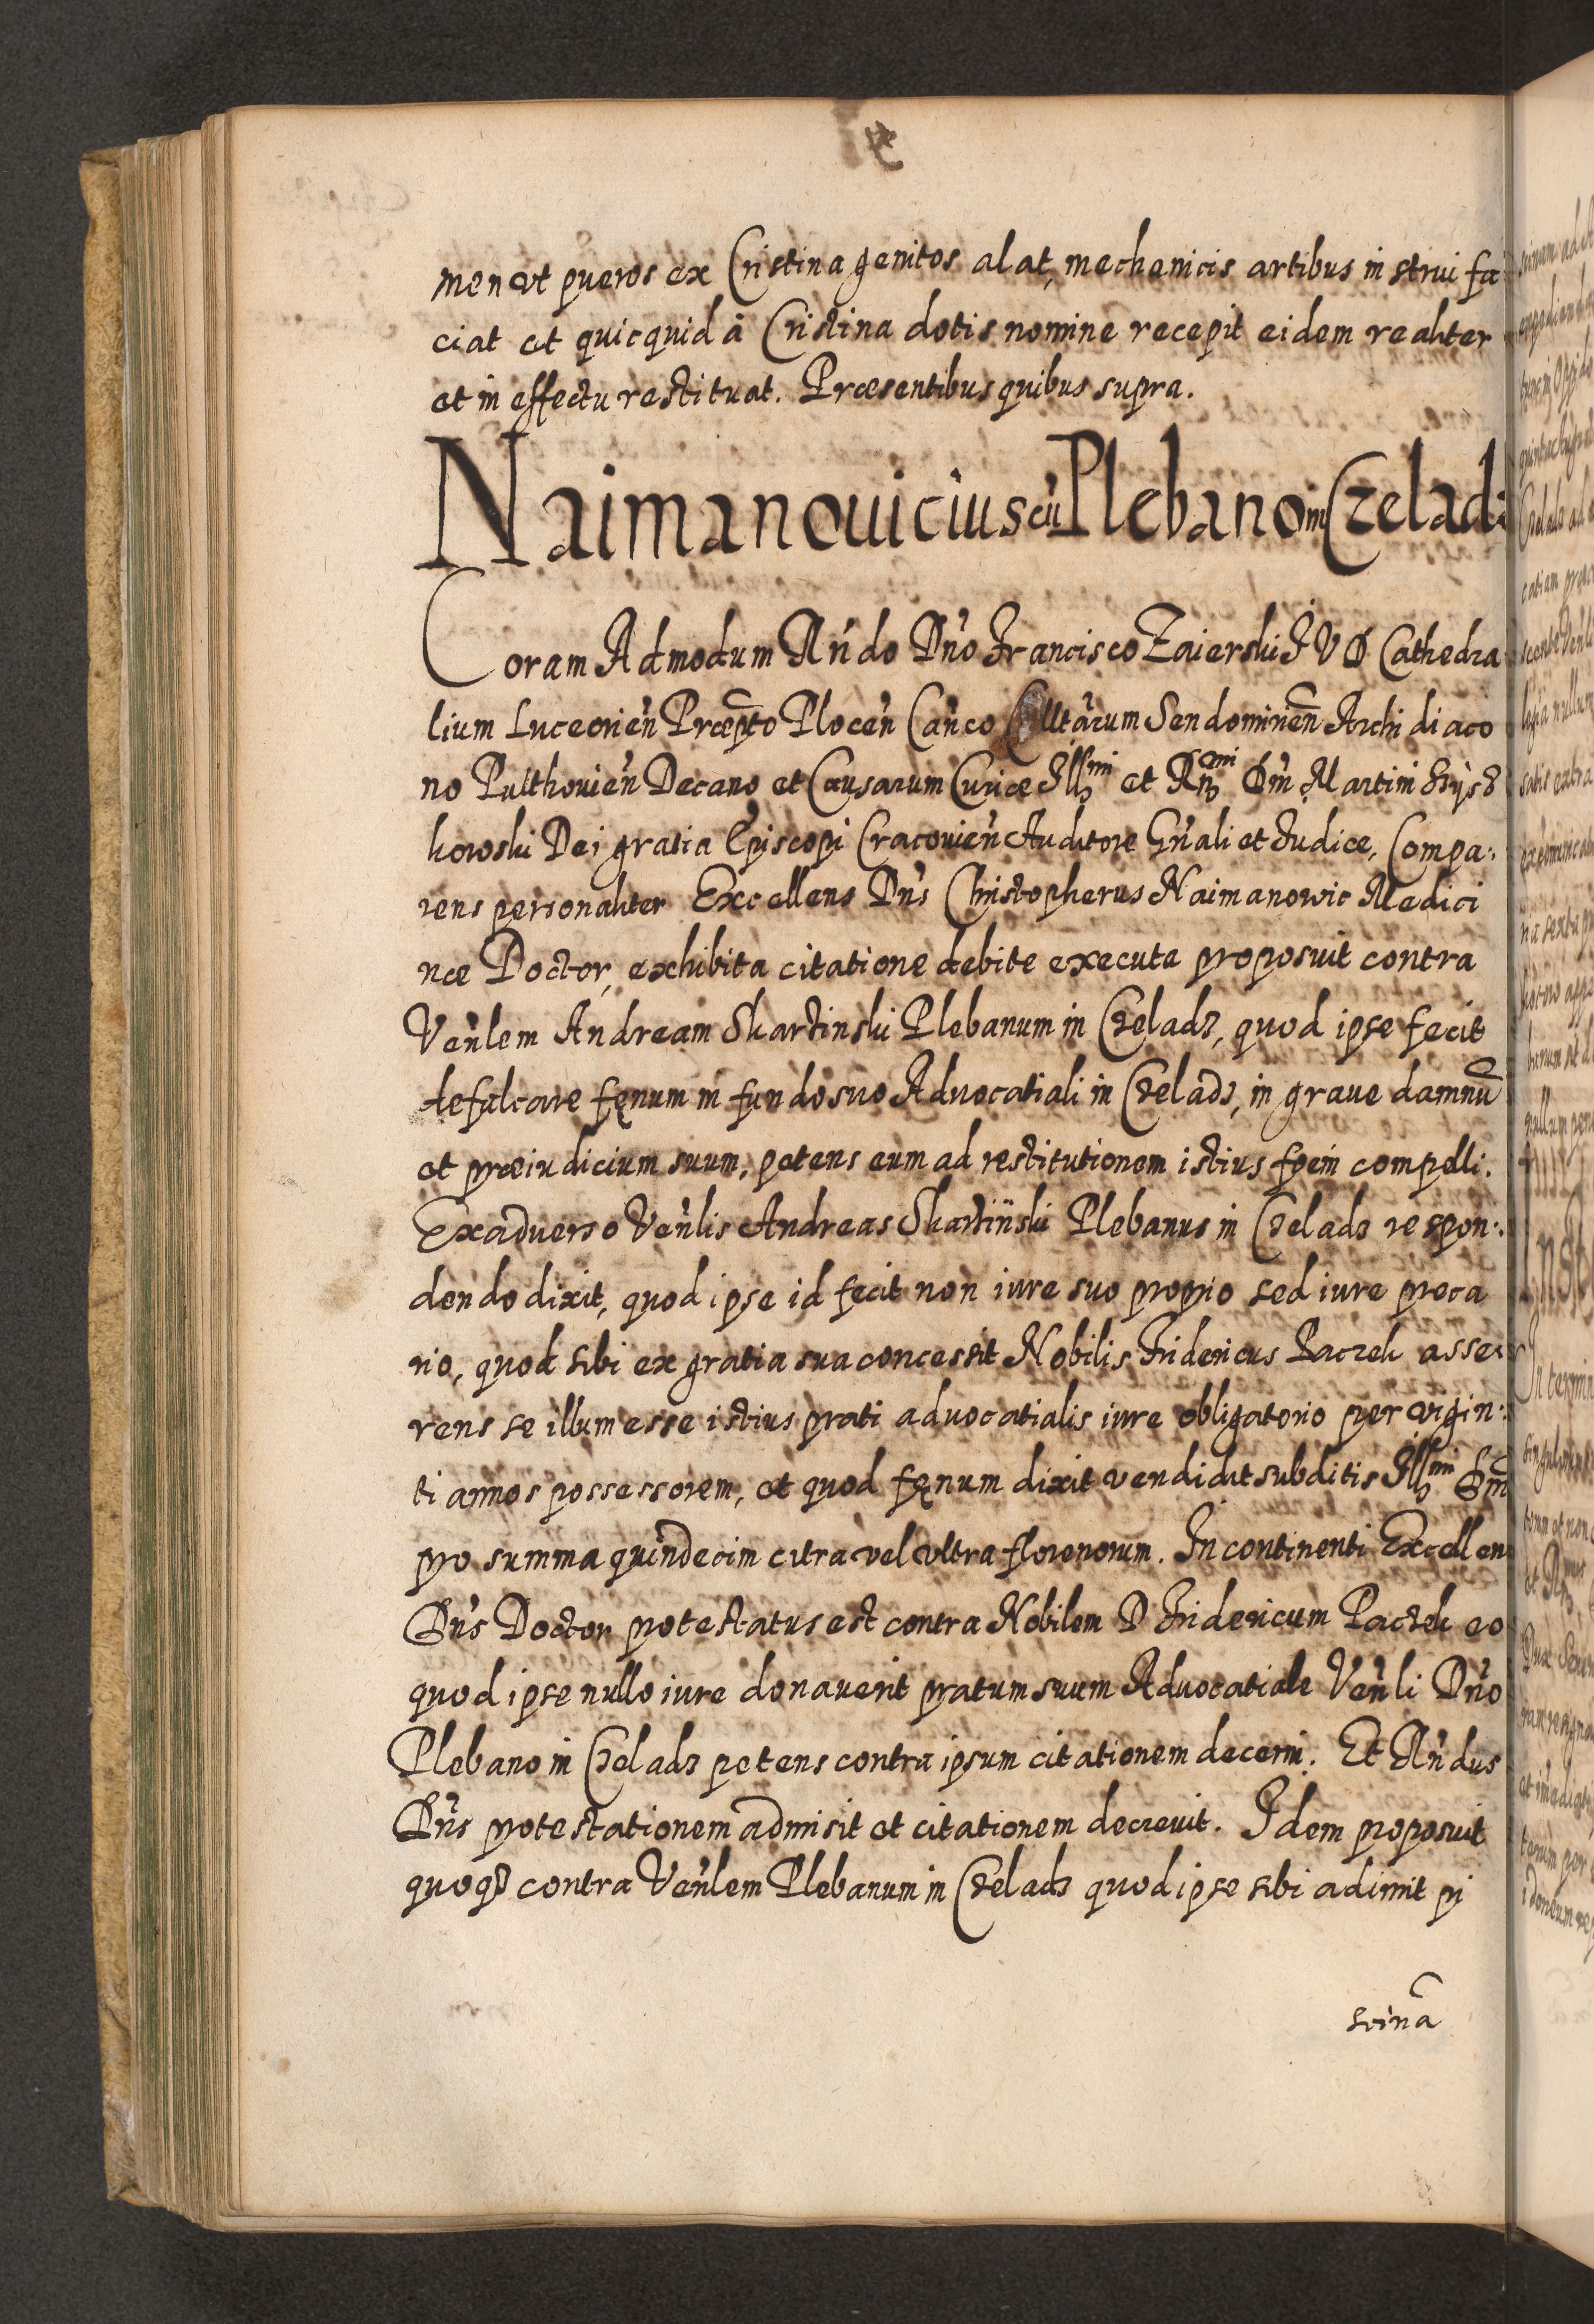 men vt pueros ex Cristina genitos alat, mechenicis artibus instrui fa
ciat et quicquid à Cristina dotis nomine recepit eidem realiter
et in effectu restituat. Præsentibus quibus supra.
Naimanouicius cũ Plebano in Czeladi
Coram Admodum Rńdo Dńo Francisco Zaierski I V D Cathedra
lium Luceorień Præpto Płoceń Cańco Colltarum Sendomirień Archidiaco
no Pulthouień Decano et Causarum Curiæ Illmi et Rńmi Dńi Martini Szysz
kowski Dei gratia Episcopi Cracouień Auditore Gńali et Iudice, Compa:
rens personaliter Excellens Dńs Christopherus Naimanowic Medici
næ Doctor, exhibita citatione debite executa proposuit contra
Veńlem Andream Skarzinski Plebanum in Czeladz, quod ipse fecit
defalcare fęnum in fundo suo Aduocatiali in Czeladz, in graue damnũ
et præiudicium suum, petens eum ad restitutionem istius fœni compelli.
Exaduerso Veńlis Andreas Skarżinski Plebanus in Czeladz respon:
dendo dixit, quod ipse id fecit non iure suo proprio sed iure preca
rio, quod sibi ex gratia sua concessit Nobilis Fridericus Paczek asse:
rens se illum esse istius prati aduocatialis iure obligatorio per vigin:
ti annos possessorem, et quod fęnum dixit vendidit subditis Illmi Dńi
pro summa quindecim citra vel vltra florenorum. In continenti Excellen
Dńs Doctor protestatus est contra Nobilem D Fridericum Paczek eo
quod ipse nullo iure donauerit pratum suum Aduocatiale Veńli Dńo
Plebano in Czeladz petens contra ipsum citationem decerni. Et Rńdus
Dńs protestationem admisit et citationem decreuit. Idem proposuit
quoqꝫ contra Veńlem Plebanum in Czeladz quod ipse sibi adimit pi
scinã